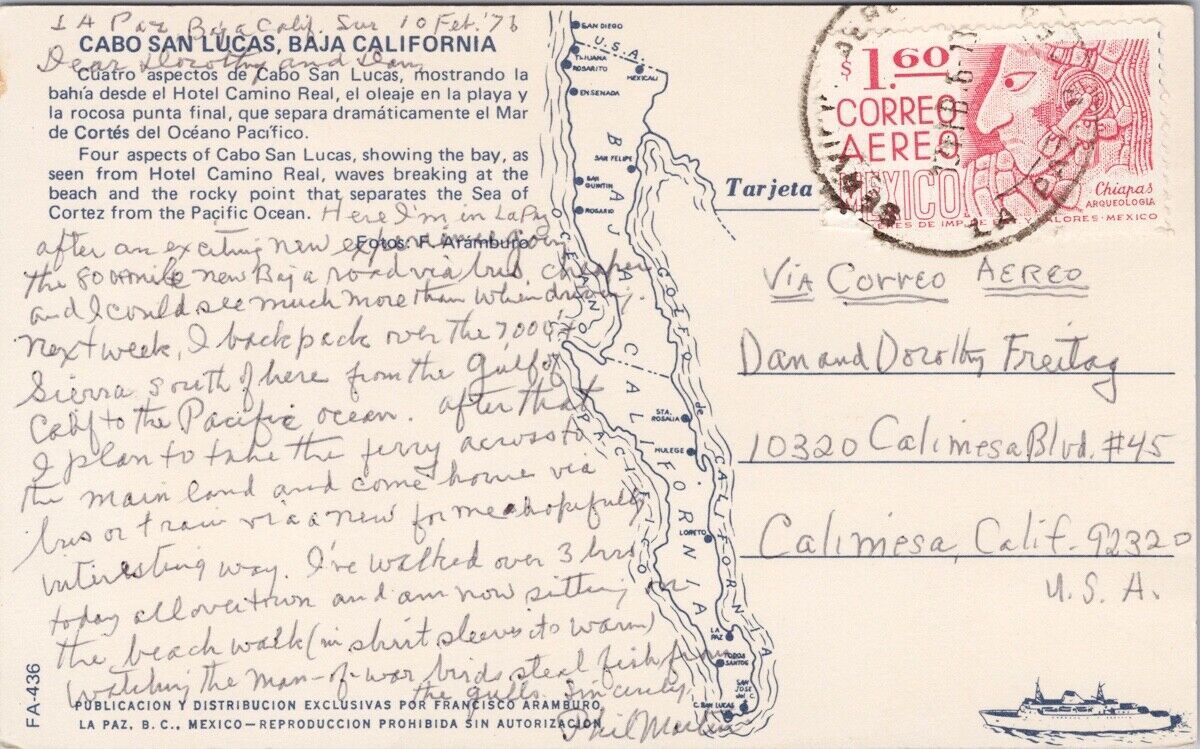 LA Paz Baja Calif. Sur 10 Feb. '76
CABO SAN LUCAS, BAJA CALIFORNIA
Dear Dorothy and Dan,
Cuatro aspectos de Cabo San Lucas, mostrando la
bahía desde el Hotel Camino Real, el oleaje en la playa y
la rocosa punta final, que separa dramáticamente el Mar
de Cortés del Océano Pacífico.
Four aspects of Cabo San Lucas, showing the bay, as
seen from Hotel Camino Real, waves breaking at the
beach and the rocky point that separates the Sea of
Cortez from the Pacific Ocean.
Fotos: F. Aramburo
Here I'm in LaPaz
after an exciting new experience going
the 800 mile new Baja road via bus, cheaper
and I could see much more than when driving.
Next week, I backpack over the 7,000 ft
Sierra south of here from the Gulf of
Calif to the Pacific ocean. After that
I plan to take the ferry across to
the main land and come home via
bus or train via a new for me hopefully
interesting way. I've walked over 3 hrs
today all over town and am now sitting on
the beach walk (in shirt sleeves its warm)
watching the man-of-war birds steal fish from
the gulls. Sincerely,
Phil Martin
PUBLICACION Y DISTRIBUCION EXCLUSIVAS POR FRANCISCO ARAMBURO
LA PAZ, B. C., MEXICO—REPRODUCCION PROHIBIDA SIN AUTORIZACION
FA-436
SAN DIEGO
U.S.A.
TIJUANA
ROSARITO
MEXICALI
ENSENADA
SAN FELIPE
SAN QUINTIN
ROSARIO
STA. ROSALIA
MULEGE
LORETO
LA PAZ
TODOS SANTOS
SAN JOSE del C.
C. SAN LUCAS
BAJA CALIFORNIA
OCEANO PACIFICO
GOLFO de CALIFORNIA
Tarjeta
1.60
CORREO
AEREO
MEXICO
Chiapas
ARQUEOLOGIA
LA PAZ
VIA Correo AEREO
Dan and Dorothy Freitag
10320 Calimesa Blvd. #45
Calimesa, Calif. 92320
U. S. A.